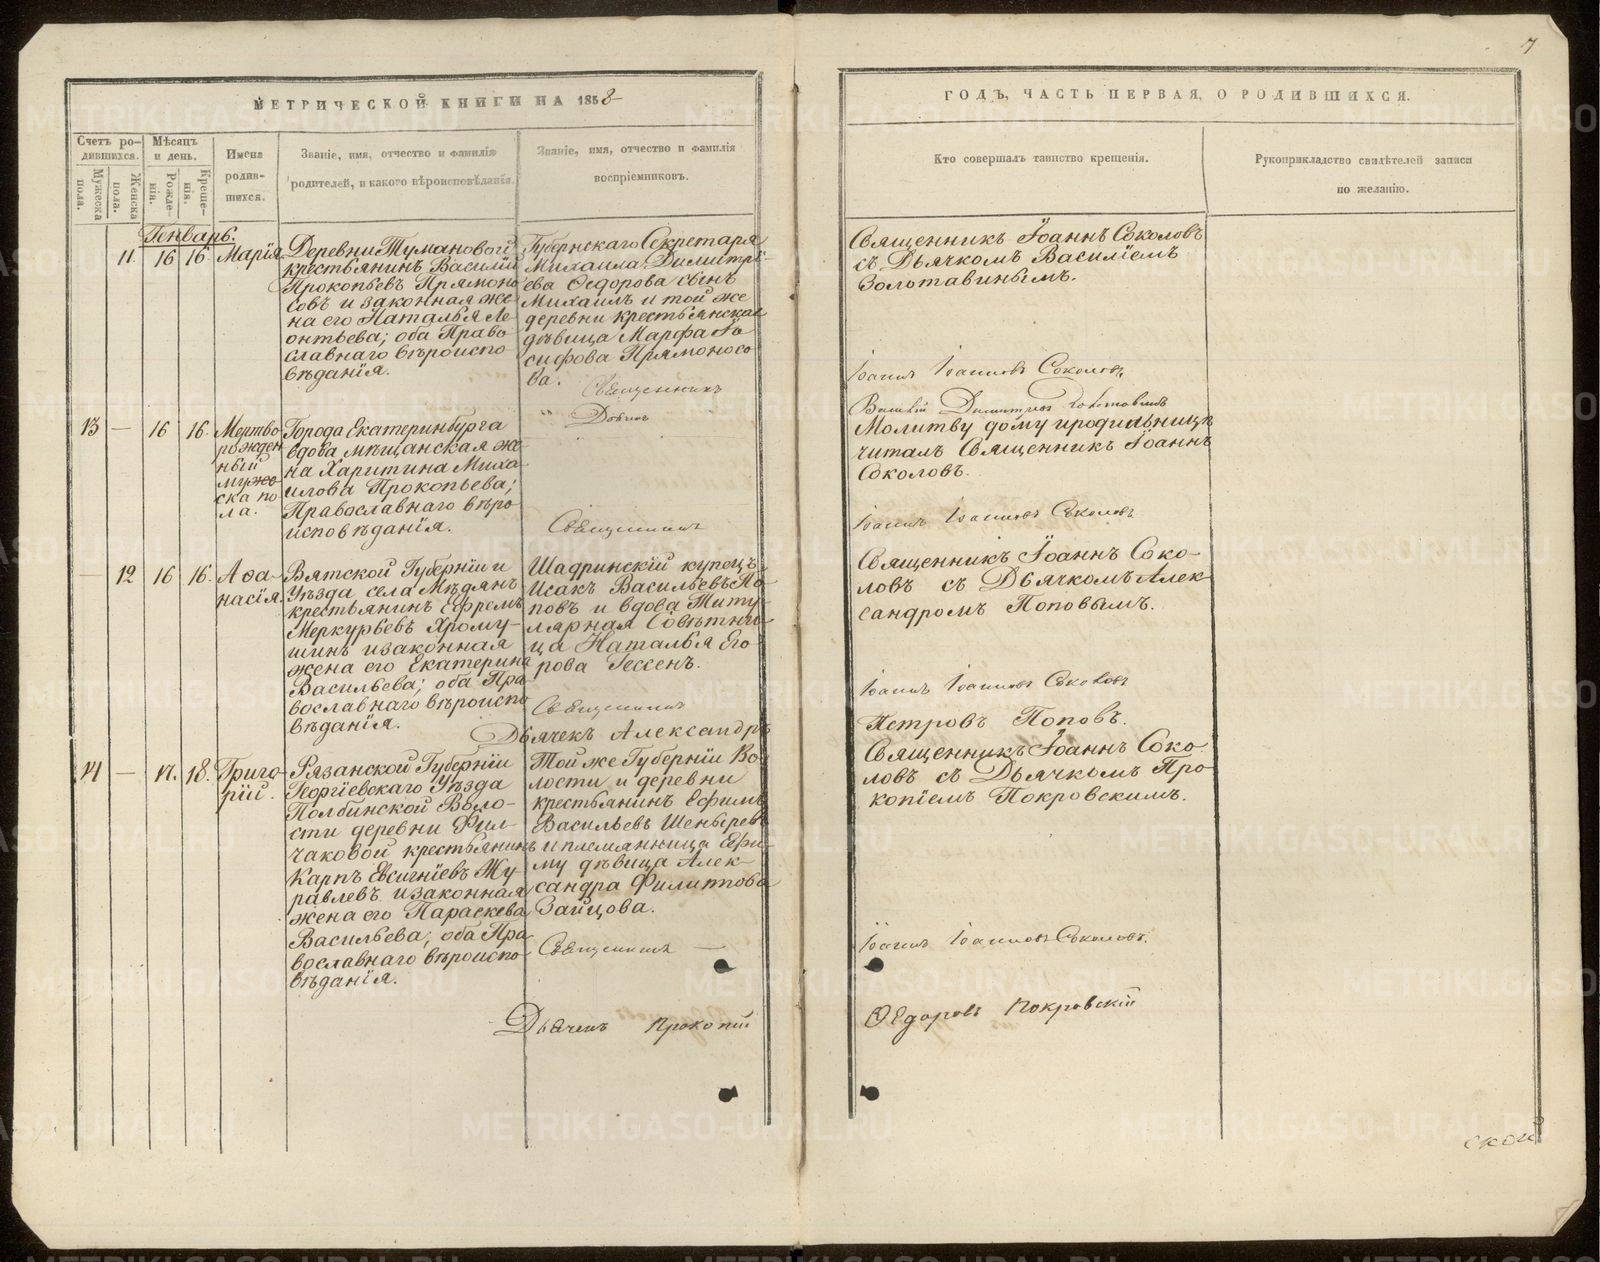 7
МЕТРИЧЕСКОЙ КНИГИ НА 1858
ГОДЪ, ЧАСТЬ ПЕРВАЯ, О РОДИВШИХСЯ.
Счетъ ро-
дившихся.
Мужеска
пола.
Женска
пола.
Мѣсяцъ
и день.
Рожде-
нія.
Креще-
нія.
Имена
родив-
шихся.
Званіе, имя, отчество и фамилія
родителей, и какого вѣроисповѣданія.
Званіе, имя, отчество и фамилія
воспріемниковъ.
Кто совершалъ таинство крещенія.
Рукоприкладство свидѣтелей записи
по желанію.
Генварь.
11. 16 16 Марія
Деревни Тумановой
крестьянинъ Василій
Прокопьевъ Прямоно
совъ и законная же
на его Наталья Ле
онтьева; оба Право
славнаго вѣроиспо
вѣданія.
Губернскаго Секретаря
Михаила Димитрі-
ева Ѳедорова сынъ
Михаилъ и той же
деревни крестьянская
дѣвица Марфа Іо
сифова Прямоносо
ва.
Священникъ Іоаннъ Соколовъ
съ Дьячкомъ Василіемъ
Золотавинымъ.
Священникъ
Іоаннъ Іоанновъ Соколовъ
Василій Димитріевъ
13 — 16 16. Мертво
рожден
ный
мужес
ска по
ла.
Города Екатеринбурга
вдова мѣщанская же
на Харитина Миха
илова Прокопьева;
Православнаго вѣро
исповѣданія.
Молитву дому и родильницѣ
читалъ Священникъ Іоаннъ
Соколовъ.
Священникъ
Іоаннъ Іоанновъ Соколовъ
— 12 16 16. Аѳа-
насія.
Вятской Губерніи и
Уѣзда села Мѣдянъ
крестьянинъ Ефремъ
Меркурьевъ Хрому-
шинъ и законная
жена его Екатерина
Васильева; оба Пра
вославнаго вѣроиспо
вѣданія.
Шадринскій купецъ
Исакъ Васильевъ По
повъ и вдова Титу-
лярная Совѣтни-
ца Наталья Его
рова Гессенъ.
Священникъ Іоаннъ Соко-
ловъ съ Дьячкомъ Алек
сандромъ Поповымъ.
Священникъ
Іоаннъ Іоанновъ Соколовъ
Дьячекъ Александръ
Петровъ Поповъ.
14 — 17. 18. Григо-
рій.
Рязанской Губерніи
Георгіевскаго Уѣзда
Полбинской Воло-
сти деревни Фил-
чаковой крестьянинъ
Карпъ Евсигніевъ Жу
равлевъ и законная
жена его Параскева
Васильева; оба Пра
вославнаго вѣроиспо
вѣданія.
Той же Губерніи Во
лости и деревни
крестьянинъ Ефимъ
Васильевъ Шеныревъ
и племянница Ефи-
му дѣвица Алек-
сандра Филиппова
Зайцова.
Священникъ Іоаннъ Соко
ловъ съ Дьячкомъ Про
копіемъ Покровскимъ.
Священникъ —
Іоаннъ Іоанновъ Соколовъ.
Дьячекъ Прокопій
Ѳедоровъ Покровскій
ской